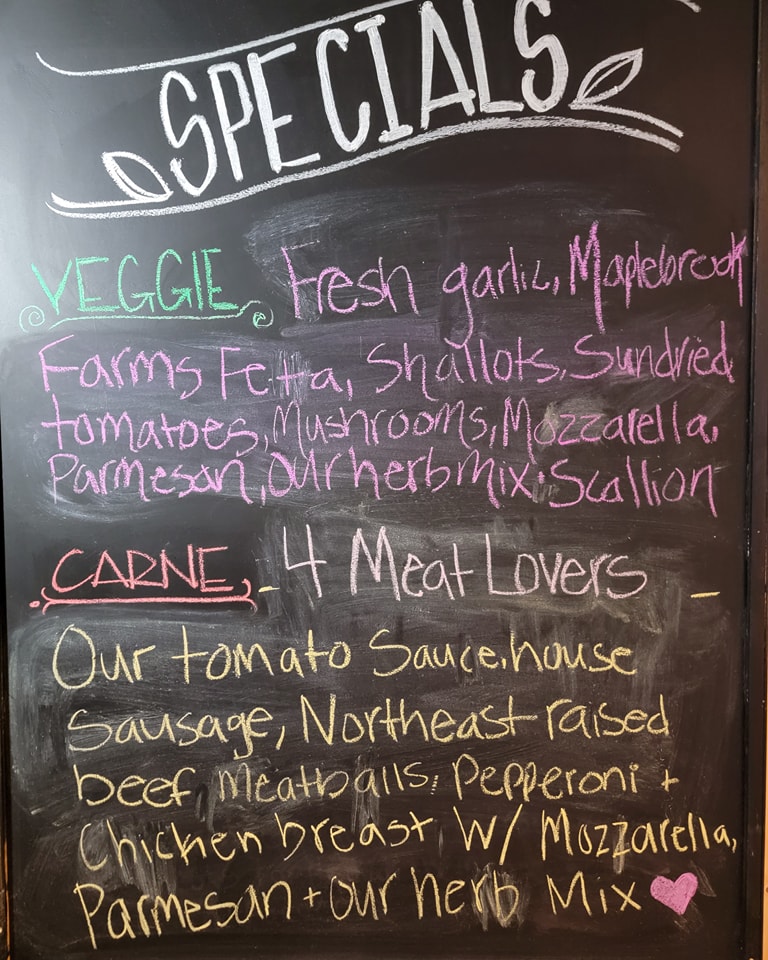 SPECIALS
VEGGIE Fresh garlic, Maplebrook
Farms Fetta, Shallots, Sundried
tomatoes, Mushrooms, Mozzarella,
Parmesan, Our herb mix. Scallion
CARNE, - 4 Meat Lovers -
Our tomato Sauce, house
Sausage, Northeast raised
beef Meatballs, Pepperoni +
Chicken breast W/ Mozzarella,
Parmesan + our herb Mix